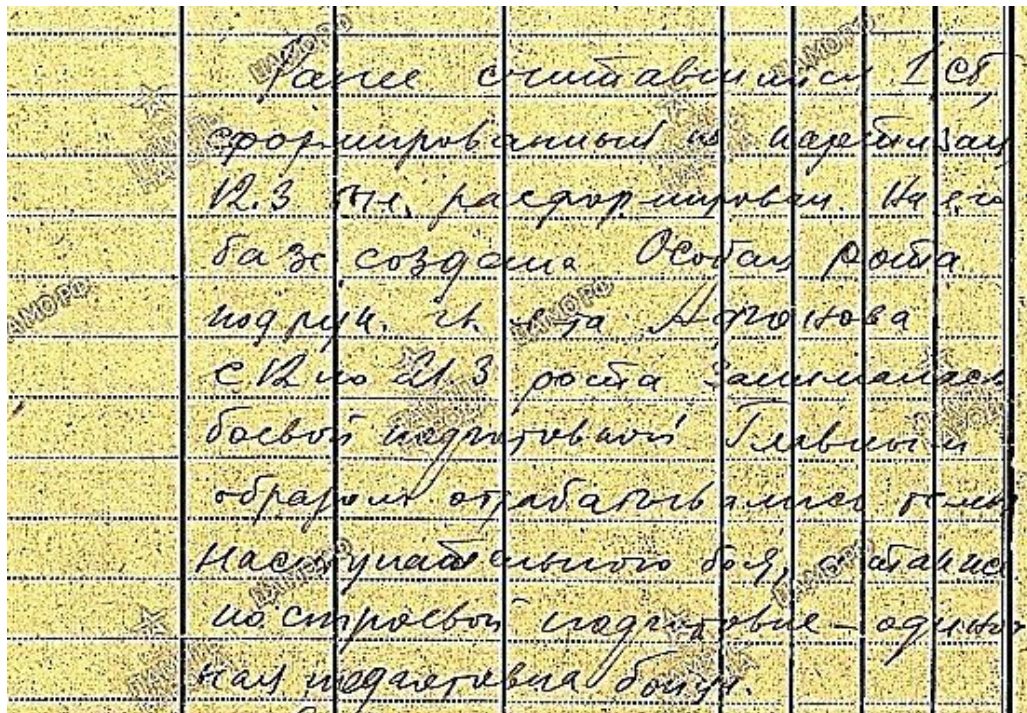 Ранее считавшийся 1 сб,
сформированный из партизан
12.3 расформирован. На его
базе создана Особая рота
под рук. ст. л-та Афонова
С 12 по 21.3 рота занималась
боевой подготовкой Главным
образом отрабатывались темы
наступательного боя, а также
по строевой подготовке – одиноч
ная подготовка бойца.